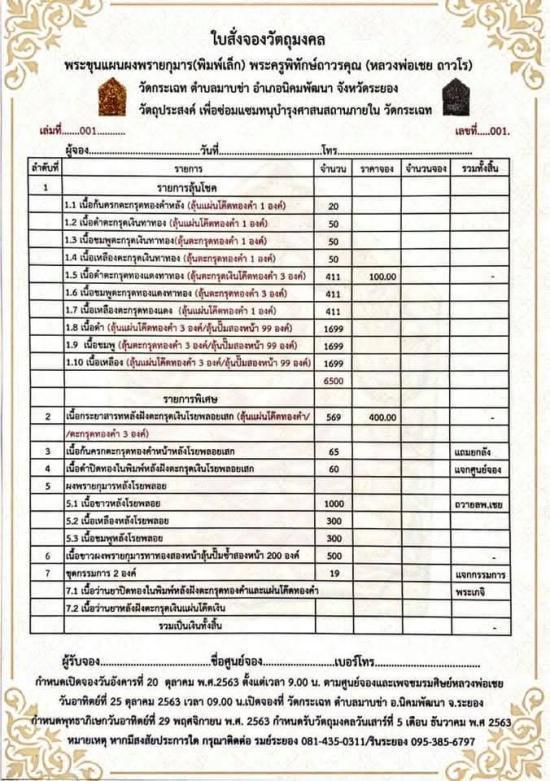 ใบสั่งจองวัตถุมงคล
พระขุนแผนผงพรายกุมาร(พิมพ์เล็ก) พระครูพิทักษ์ถาวรคุณ (หลวงพ่อเชย ถาวโร)
วัดกระเฉท ตำบลมาบข่า อำเภอนิคมพัฒนา จังหวัดระยอง
วัตถุประสงค์ เพื่อซ่อมแซมทนุบำรุงศาสนสถานภายใน วัดกระเฉท
เล่มที่.......001........... เลขที่.....001.
ผู้จอง..............................วันที่..............................โทร..............................
ลำดับที่ รายการ จำนวน ราคาจอง จำนวนจอง รวมทั้งสิ้น
1 รายการลุ้นโชค
1.1 เนื้อก้นครกตะกรุดทองคำหลัง (ลุ้นแผ่นโค๊ดทองคำ 1 องค์) 20
1.2 เนื้อดำตะกรุดเงินทาทอง (ลุ้นแผ่นโค๊ดทองคำ 1 องค์) 50
1.3 เนื้อชมพูตะกรุดเงินทาทอง(ลุ้นตะกรุดทองคำ 1 องค์) 50
1.4 เนื้อเหลืองตะกรุดเงินทาทอง (ลุ้นตะกรุดทองคำ 1 องค์) 50
1.5 เนื้อดำตะกรุดทองแดงทาทอง (ลุ้นตะกรุดเงินโค๊ดทองคำ 3 องค์) 411 100.00 -
1.6 เนื้อชมพูตะกรุดทองแดงทาทอง (ลุ้นตะกรุดทองคำ 3 องค์) 411
1.7 เนื้อเหลืองตะกรุดทองแดง (ลุ้นแผ่นโค๊ดทองคำ 1 องค์) 411
1.8 เนื้อดำ (ลุ้นแผ่นโค๊ดทองคำ 3 องค์/ลุ้นปั๊มสองหน้า 99 องค์) 1699
1.9 เนื้อชมพู (ลุ้นตะกรุดทองคำ 3 องค์/ลุ้นปั๊มสองหน้า 99 องค์) 1699
1.10 เนื้อเหลือง (ลุ้นแผ่นโค๊ดทองคำ 3 องค์/ลุ้นปั๊มสองหน้า 99 องค์) 1699
6500
รายการพิเศษ
2 เนื้อกระยาสารทหลังฝังตะกรุดเงินโรยพลอยเสก (ลุ้นแผ่นโค๊ดทองคำ/ 569 400.00 -
/ตะกรุดทองคำ 3 องค์)
3 เนื้อก้นครกตะกรุดทองคำหน้าหลังโรยพลอยเสก 65 แถมยกลัง
4 เนื้อดำปิดทองในพิมพ์หลังฝังตะกรุดเงินโรยพลอยเสก 60 แจกศูนย์จอง
5 ผงพรายกุมารหลังโรยพลอย
5.1 เนื้อขาวหลังโรยพลอย 1000 ถวายลพ.เชย
5.2 เนื้อเหลืองหลังโรยพลอย 300
5.3 เนื้อชมพูหลังโรยพลอย 300
6 เนื้อขาวผงพรายกุมารทาทองสองหน้าลุ้นปั๊มซ้ำสองหน้า 200 องค์ 500 -
7 ชุดกรรมการ 2 องค์ 19 แจกกรรมการ
7.1 เนื้อว่านยาปิดทองในพิมพ์หลังฝังตะกรุดทองคำและแผ่นโค๊ดทองคำ พระเกจิ
7.2 เนื้อว่านยาหลังฝังตะกรุดเงินแผ่นโค๊ดเงิน
รวมเป็นเงินทั้งสิ้น -
ผู้รับจอง..............................ชื่อศูนย์จอง..............................เบอร์โทร..............................
กำหนดเปิดจองวันอังคารที่ 20 ตุลาคม พ.ศ.2563 ตั้งแต่เวลา 9.00 น. ตามศูนย์จองและเพจชมรมศิษย์หลวงพ่อเชย
วันอาทิตย์ที่ 25 ตุลาคม 2563 เวลา 09.00 น.เปิดจองที่ วัดกระเฉท ตำบลมาบข่า อ.นิคมพัฒนา จ.ระยอง
กำหนดพุทธาภิเษกวันอาทิตย์ที่ 29 พฤศจิกายน พ.ศ. 2563 กำหนดรับวัตถุมงคลวันเสาร์ที่ 5 เดือน ธันวาคม พ.ศ 2563
หมายเหตุ หากมีสงสัยประการใด กรุณาติดต่อ รมย์ระยอง 081-435-0311/รินระยอง 095-385-6797